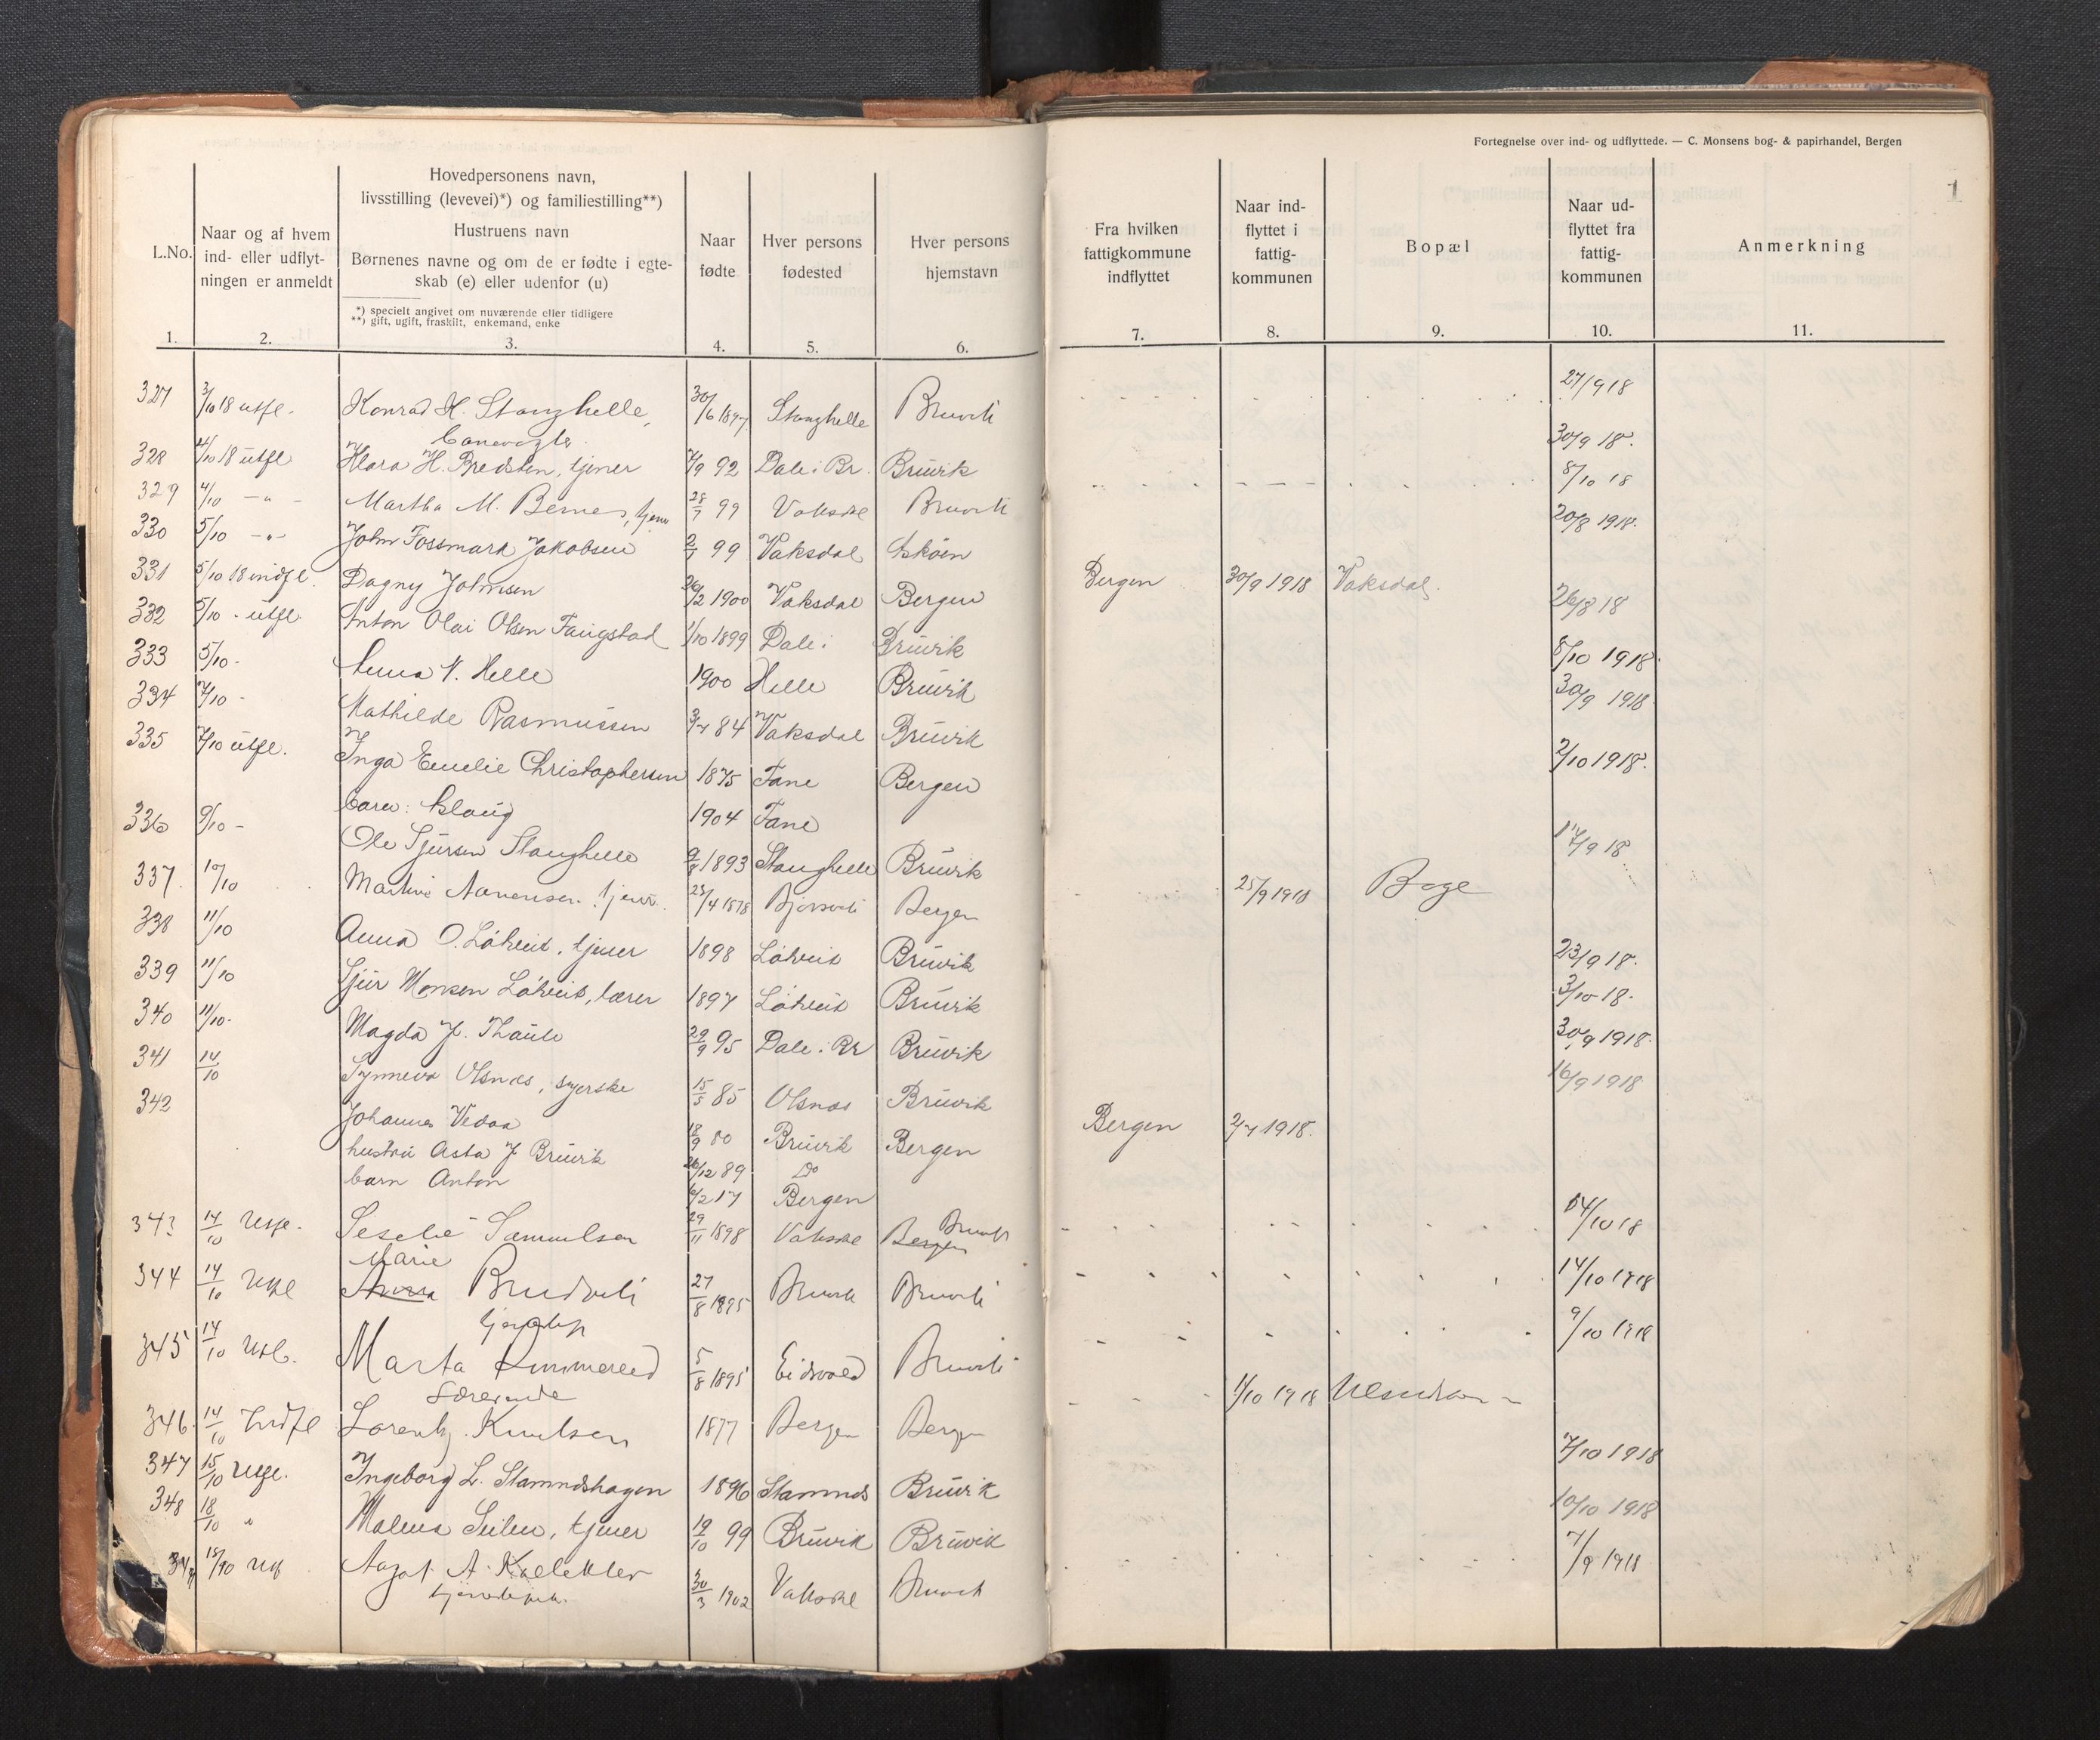 Fortegnelse over ind- og udflyttede. — C. Monsens bog- & papirhandel, Bergen
1
L.No.
Naar og af hvem
ind- eller udflyt-
ningen er anmeldt
Hovedpersonens navn,
livsstilling (levevei)*) og familiestilling**)
Hustruens navn
Børnenes navne og om de er fødte i egte-
skab (e) eller udenfor (u)
*) specielt angivet om nuværende eller tidligere
**) gift, ugift, fraskilt, enkemand, enke
Naar
fødte
Hver persons
fødested
Hver persons
hjemstavn
Fra hvilken
fattigkommune
indflyttet
Naar ind-
flyttet i
fattig-
kommunen
Bopæl
Naar ud-
flyttet fra
fattig-
kommunen
Anmerkning
1. 2. 3. 4. 5. 6. 7. 8. 9. 10. 11.
327 3/10 18 utfl. Konrad H. Stanghelle, 30/6 1897 Stanghelle Bruvik 27/9 18
328 4/10 18 utfl. Klara H. Bredsten, tjener 7/9 92 Dale i Br. Bruvik 30/9 18.
329 4/10 — " — Martha M. Bernes, tjener 28/7 99 Vaksdal Bruvik 8/10 18
330 5/10 — " — John Fossmark Jakobsen 99 Vaksdal 20/8 1918.
331 5/10 18 indfl. Dagny Johnsen 26/2 1900 Vaksdal Bergen Bergen 30/9 1918 Vaksdal.
332 5/10 - utfl. Anton Olai Olsen Faugstad 1/10 1899 Dale i Bruvik 26/8 18
333 5/10 - N. Helle 1900 Helle Bruvik 8/10 1918.
334 7/10 - Mathilde Rasmussen 84 Vaksdal Bruvik 30/9 1918.
335 7/10 utfl. Inga Emelie Christophersen 1875 Fane Bergen 2/10 1918.
barn: Aslaug 1904 Fane
336 9/10 - Ole Sjursen Stanghelle 1893 Stanghelle Bruvik 17/9 18
337. 10/10 Martine tjener 1878 Bergen 25/9 1918 Boge
338 11/10 Anna O. Løtveit, tjener 1898 Løtveit Bruvik 23/9 18.
339 11/10 Sjur Monsen Løtveit, lærer 1897 Løtveit Bruvik 3/10 18.
340 11/10. Magda J. Thaule 29/9 95 Dale i Br Bruvik 30/9 1918.
341 14/10 Synneva Olsnes, syerske 15/5 85 Olsnes Bruvik 16/9 1918
342 Johannes Vedaa 18/9 80 Bruvik Bergen Bergen 2/7 1918.
hustru Asta J Bruvik 26/12 89 Do
barn Anton 6/2 17 Bergen
343 14/10 Utfl. Samuelsen 29/11 1898 Vaksdal Bergen Bruvik 14/10 18
Marie
344 14/10 Utfl Anna Brudvik 27/8 1895 Bruvik Bruvik 14/10 1918
345 14/10 Utfl. Marta 5/8 1895 Eidsvold Bruvik 9/10 1918
Lærerinde
346. 14/10 Indfl Lorentz Knutsen 1877 Bergen Bergen 1/10 1918
347 15/10 Utfl. Ingeborg L. Stamneshagen 1896 Stamnes Bruvik 7/10 1918
348 18/10 " Malena Seilen, tjener 19/10 99 Bruvik Bruvik 10/10 1918
Utfl A. 30/3 1902 Vaksdal Bruvik 7/9 1918